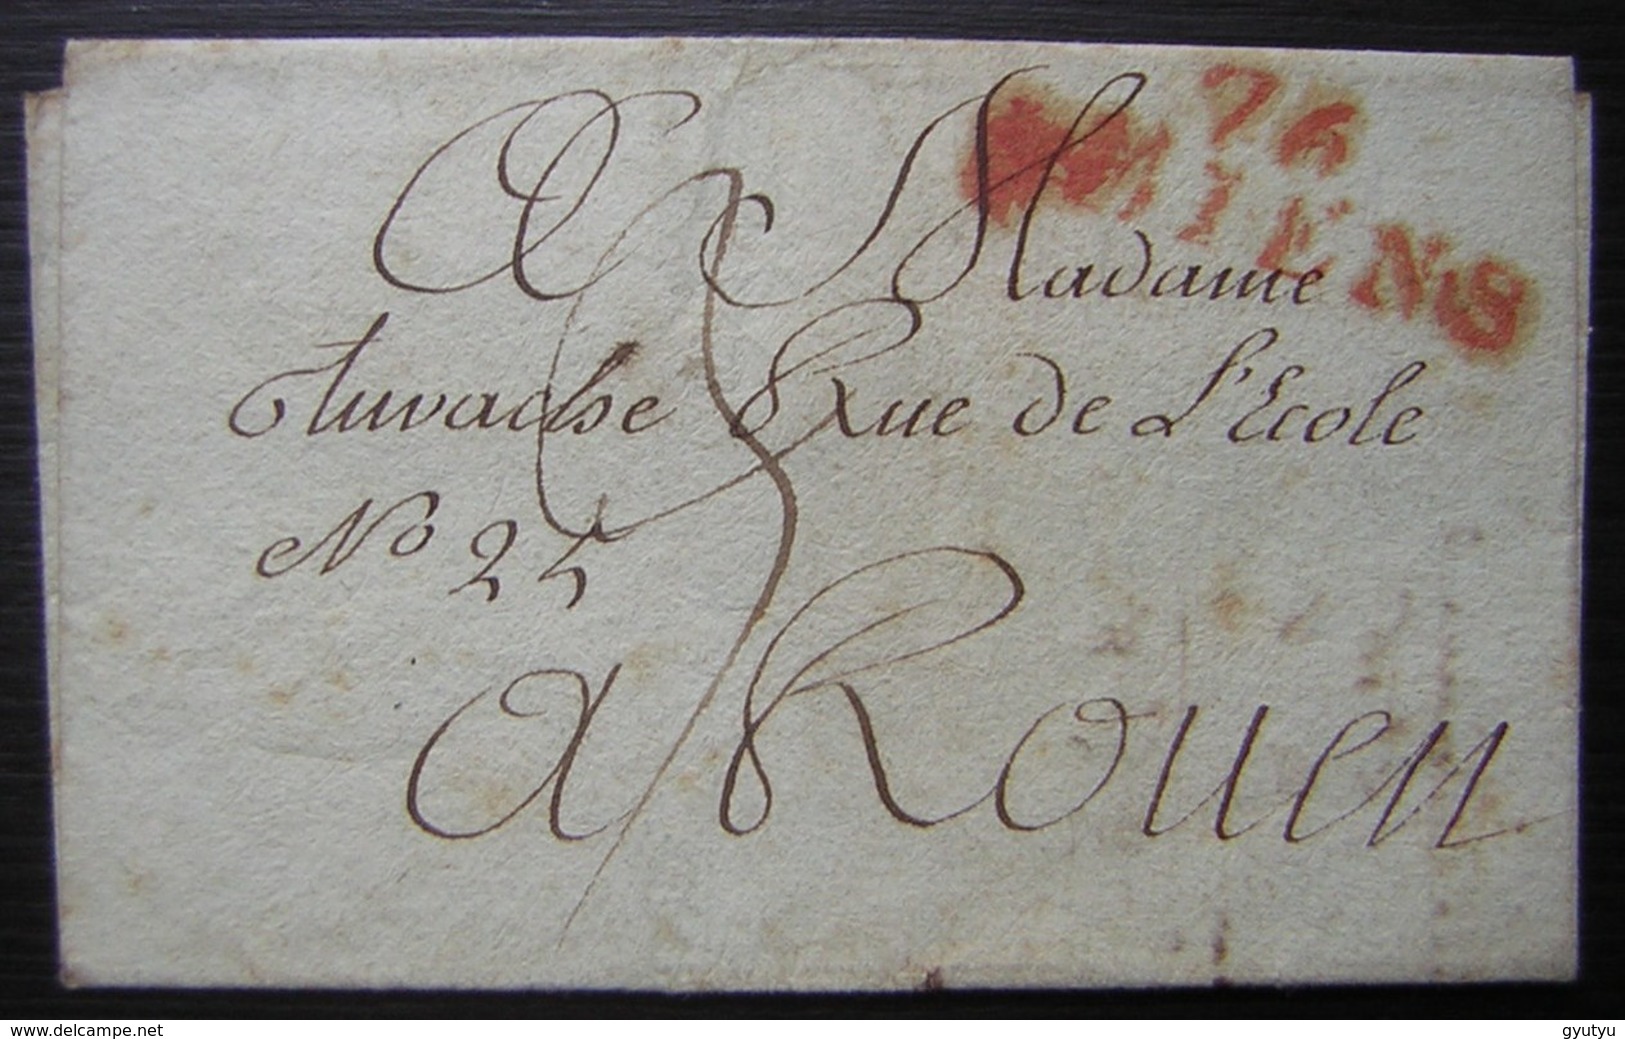 76
AMIENS
A Madame
Auvache Rue de L'Ecole
No 24
a Rouen
www.delcampe.net
gyutyu